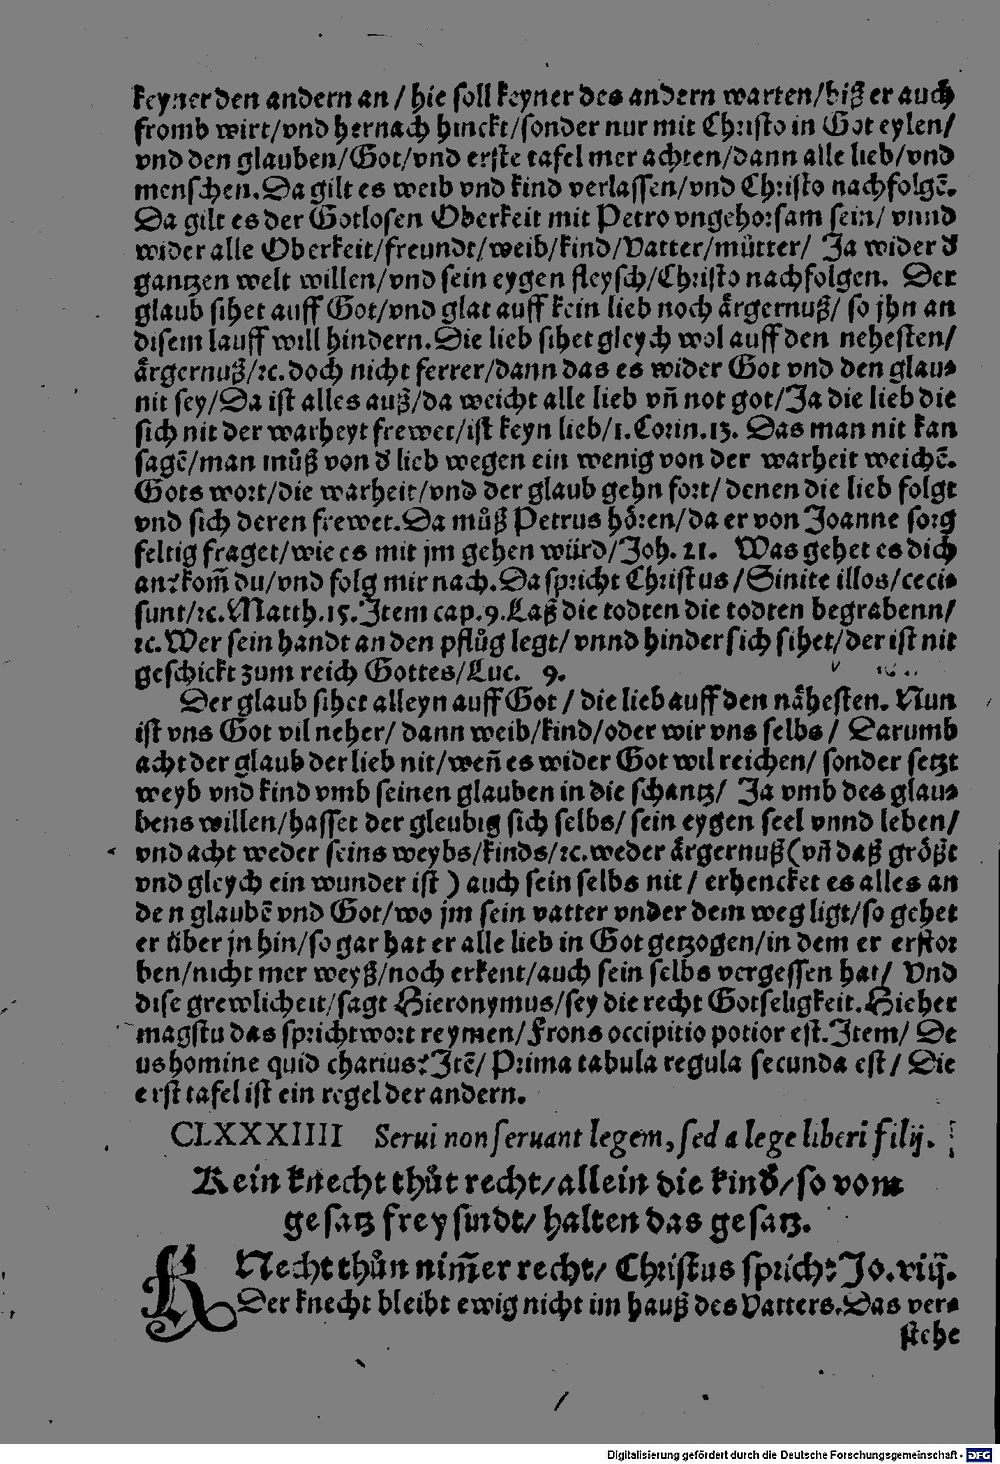 keyner den andern an / hie soll keyner des andern warten/biß er auch
fromb wirt/vnd hernach hinckt/sonder nur mit Christo in Got eylen/
vnd den glauben/Got/vnd erste tafel mer achten/dann alle lieb/vnd
menschen. Da gilt es weib vnd kind verlassen/vnd Christo nachfolgẽ.
Da gilt es der Gotlosen Oberkeit mit Petro vngehorsam sein/ vnnd
wider alle Oberkeit/freundt/weib/kind/Vatter/můtter/ Ja wider d̕
gantzen welt willen/vnd sein eygen fleysch/Christo nachfolgen. Der
glaub sihet auff Got/vnd glat auff kein lieb noch ärgernuß/ so jhn an
disem lauff will hindern. Die lieb sihet gleych wol auff den nehesten/
ärgernuß/ꝛc. doch nicht ferrer/dann das es wider Got vnd den glau⸗
nit sey/Da ist alles auß/da weicht alle lieb vñ not got/Ja die lieb die
sich nit der warheyt frewet/ist keyn lieb/1. Corin. 13. Das man nit kan
sagẽ/man můß von d̕ lieb wegen ein wenig von der warheit weichẽ.
Gots wort/die warheit/vnd der glaub gehn fort/ denen die lieb folgt
vnd sich deren frewet. Da můß Petrus hören/da er von Joanne sorg
feltig fraget/wie es mit jm gehen würd/Joh. 21. Was gehet es dich
an? kom̃ du/vnd folg mir nach. Da spricht Christus /Sinite illos/ceci⸗
sunt/ꝛc. Matth. 15. Item cap. 9. Laß die todten die todten begrabenn/
ꝛc. Wer sein handt an den pflůg legt/ vnnd hinder sich sihet/der ist nit
geschickt zum reich Gottes/Luc. 9.
Der glaub sihet alleyn auff Got / die lieb auff den nähesten. Nun
ist vns Got vil neher/ dann weib/kind/oder wir vns selbs / Darumb
acht der glaub der lieb nit/weñ es wider Got wil reichen/ sonder setzt
weyb vnd kind vmb seinen glauben in die schantz/ Ja vmb des glau⸗
bens willen/hasset der gleubig sich selbs/ sein eygen seel vnnd leben/
vnd acht weder seins weybs/kinds/ꝛc. weder ärgernuß (vñ daß größt
vnd gleych ein wunder ist ) auch sein selbs nit / erhencket es alles an
den glaubẽ vnd Got/wo jm sein vatter vnder dem weg ligt/so gehet
er über jn hin/so gar hat er alle lieb in Got getzogen/in dem er erstor
ben/nicht mer weyß/noch erkent/auch sein selbs vergessen hat/ Vnd
dise grewlicheit/sagt Hieronymus/sey die recht Gotseligkeit. Hieher
magstu das sprichtwort reymen/Frons occipitio potior est. Item/ De
us homine quid charius? Itẽ/ Prima tabula regula secunda est / Die
erst tafel ist ein regel der andern.
CLXXXIIII Serui non seruant legem, sed a lege liberi filij.
Kein knecht thůt recht/allein die kind/so vom
gesatz frey sindt/ halten das gesatz.
KNecht thůn nim̃er recht/ Christus spricht Jo. viij.
Der knecht bleibt ewig nicht im hauß des Vatters. Das ver⸗
stehe
Digitalisierung gefördert durch die Deutsche Forschungsgemeinschaft - DFG